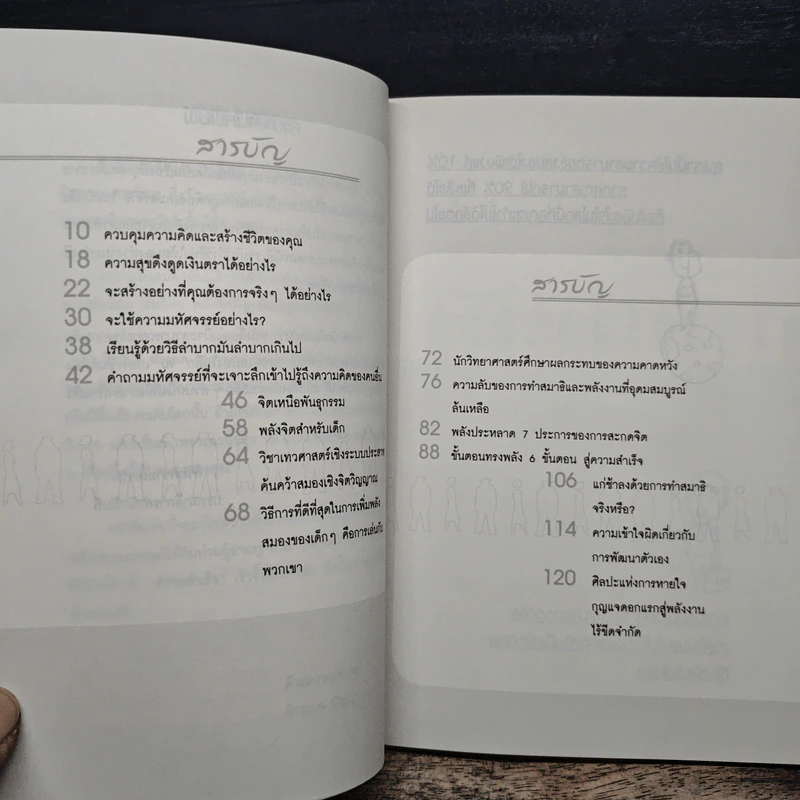 สารบัญ
10 ควบคุมความคิดและสร้างชีวิตของคุณ
18 ความสุขดึงดูดเงินตราได้อย่างไร
22 จะสร้างอย่างที่คุณต้องการจริงๆ ได้อย่างไร
30 จะใช้ความมหัศจรรย์อย่างไร?
38 เรียนรู้ด้วยวิธีลำบากมันลำบากเกินไป
42 คำถามมหัศจรรย์ที่จะเจาะลึกเข้าไปรู้ถึงความคิดของคนอื่น
46 จิตเหนือพันธุกรรม
58 พลังจิตสำหรับเด็ก
64 วิชาเทวศาสตร์เชิงระบบประสาท
ค้นคว้าสมองเชิงจิตวิญญาณ
68 วิธีการที่ดีที่สุดในการเพิ่มพลัง
สมองของเด็กๆ คือการเล่นกับ
พวกเขา
สารบัญ
72 นักวิทยาศาสตร์ศึกษาผลกระทบของความคาดหวัง
76 ความลับของการทำสมาธิและพลังงานที่อุดมสมบูรณ์
ล้นเหลือ
82 พลังประหลาด 7 ประการของการสะกดจิต
88 ขั้นตอนทรงพลัง 6 ขั้นตอน สู่ความสำเร็จ
106 แก่ช้าลงด้วยการทำสมาธิ
จริงหรือ?
114 ความเข้าใจผิดเกี่ยวกับ
การพัฒนาตัวเอง
120 ศิลปะแห่งการหายใจ
กุญแจดอกแรกสู่พลังงาน
ไร้ขีดจำกัด